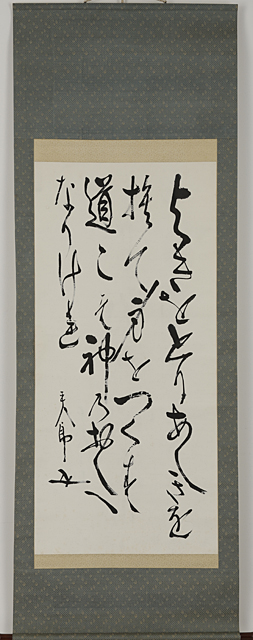 よきをとりあしきを
捨て身をつくす
道こそ神のおしへ
なりけれ